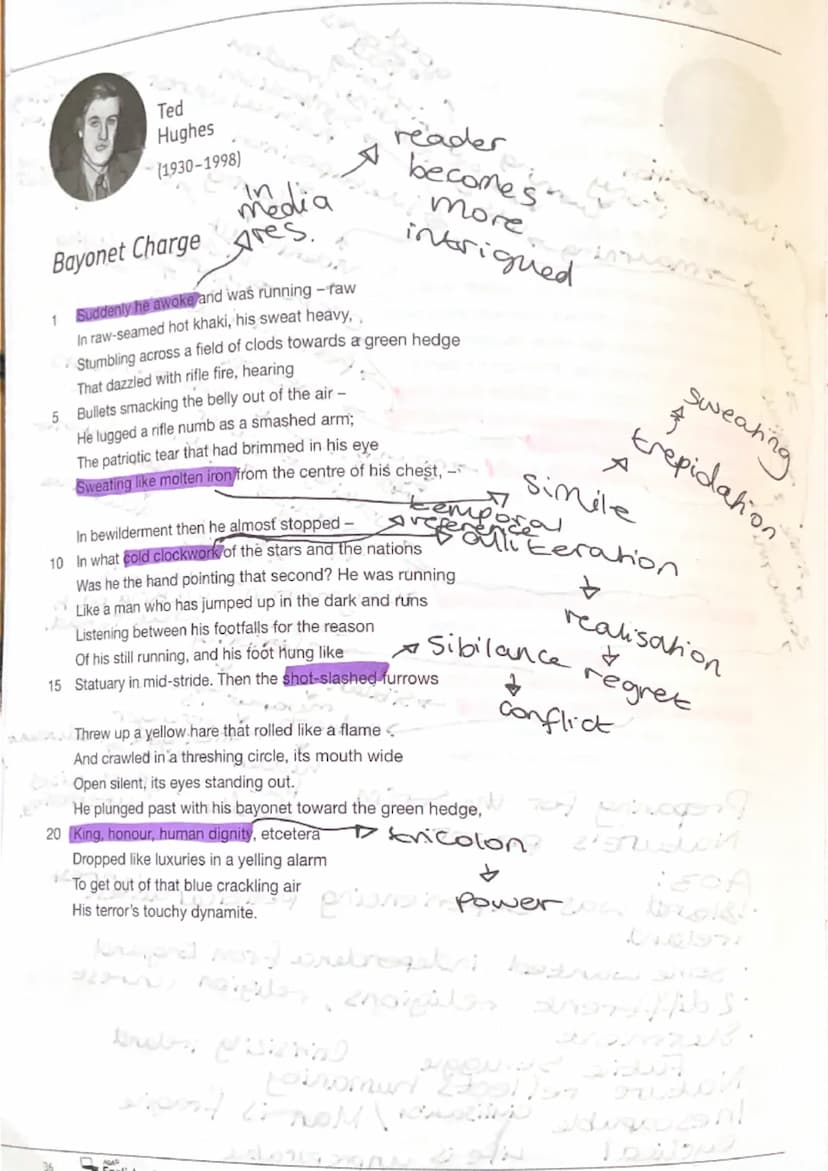 Ted
Hughes
(1930–1998)
In
media
res.
reader
becomes
more
intrigued
Bayonet Charge
1 Suddenly he awoke and was running – raw
In raw-seamed hot khaki, his sweat heavy,
Stumbling across a field of clods towards a green hedge
That dazzled with rifle fire, hearing
5 Bullets smacking the belly out of the air –
He lugged a rifle numb as a smashed arm;
The patriotic tear that had brimmed in his eye
Sweating like molten iron from the centre of his chest, –
simile
trepidation
sweating
In bewilderment then he almost stopped –
temporal
reference
10 In what cold clockwork of the stars and the nations
alliteration
realisation
regret
Was he the hand pointing that second? He was running
Like a man who has jumped up in the dark and runs
Listening between his footfalls for the reason
Of his still running, and his foot hung like
15 Statuary in mid-stride. Then the shot-slashed furrows
Sibilance
conflict
Threw up a yellow hare that rolled like a flame
And crawled in a threshing circle, its mouth wide
Open silent, its eyes standing out.
He plunged past with his bayonet toward the green hedge,
20 King, honour, human dignity, etcetera
tricolon
power
Dropped like luxuries in a yelling alarm
To get out of that blue crackling air
His terror's touchy dynamite.
36